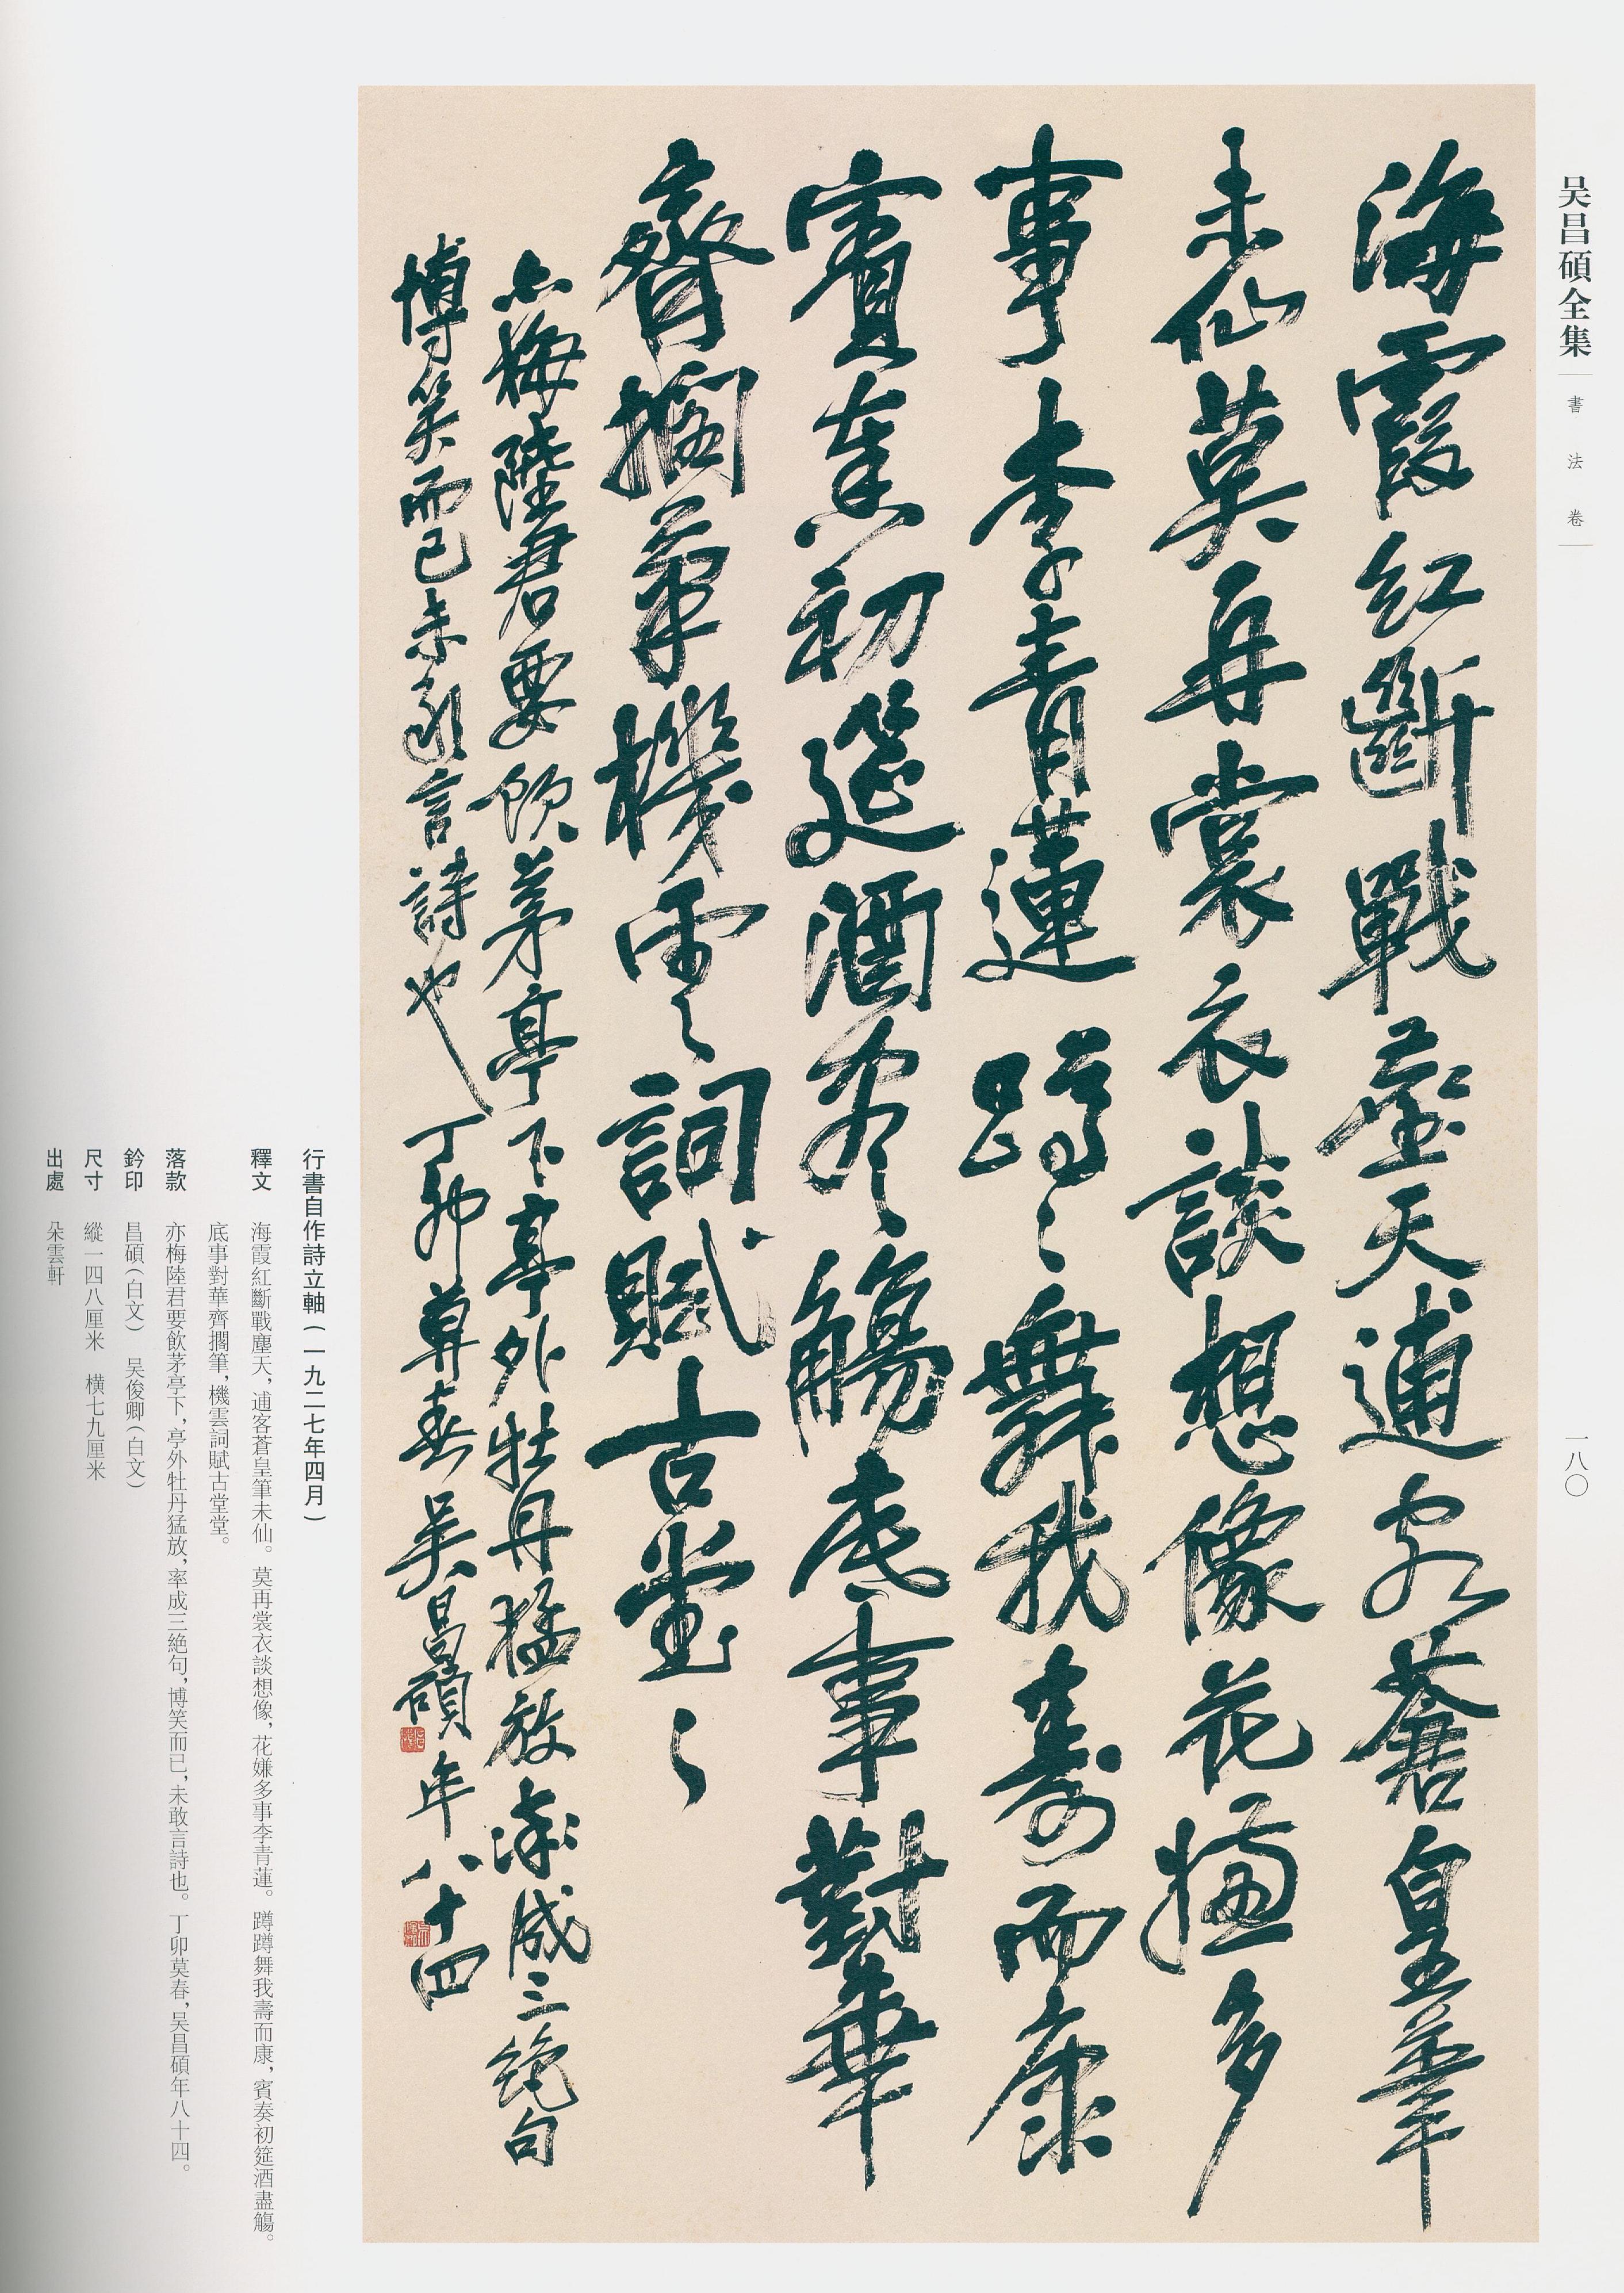 吴昌碩全集
書法卷
一八〇
海霞紅斷戰塵天逋客蒼皇筆
未仙莫再裳衣談想像花嫌多
事李青蓮蹲〻舞我壽而康
賓奏初筵酒盡觴底事對華
齊擱筆機雲詞賦古堂〻
亦梅陸君要飲茅亭下亭外牡丹猛放率成三絶句
博笑而已未敢言詩也丁卯莫春吴昌碩年八十四
行書自作詩立軸(一九二七年四月)
釋文 海霞紅斷戰塵天,逋客蒼皇筆未仙。莫再裳衣談想像,花嫌多事李青蓮。蹲蹲舞我壽而康,賓奏初筵酒盡觴。
底事對華齊擱筆,機雲詞賦古堂堂。
落款 亦梅陸君要飲茅亭下,亭外牡丹猛放,率成三絶句,博笑而已,未敢言詩也。丁卯莫春,吴昌碩年八十四。
鈐印 昌碩(白文) 吴俊卿(白文)
尺寸 縱一四八厘米 横七九厘米
出處 朵雲軒